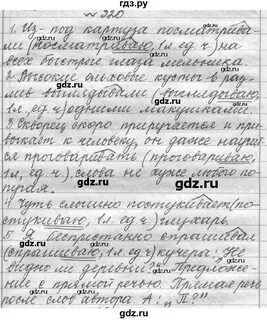 гдз.ру
№ 220
1. Из-под картуза посматрива-
ли (посматриваю, 1 л. ед. ч) на
всех быстрые глаза мельника.
2. Высокие ольховые кусты в раз-
лив выглядывали (выглядываю,
1 л. ед. ч) одними макушками.
3. Скворец скоро приручается и при-
выкает к человеку, он даже научит-
ся проговаривать (проговариваю,
1 л, ед. ч) слова не хуже любого по-
пугая.
4. Чуть слышно постукивает (по-
стукиваю, 1 л. ед. ч) глухарь.
5. Я беспрестанно спрашивал
(спрашиваю, 1 л. ед. ч) кучера: „Не
видно ли деревни?" Предложе-
ние с прямой речью. Прямая речь
после слов автора А: „П?"